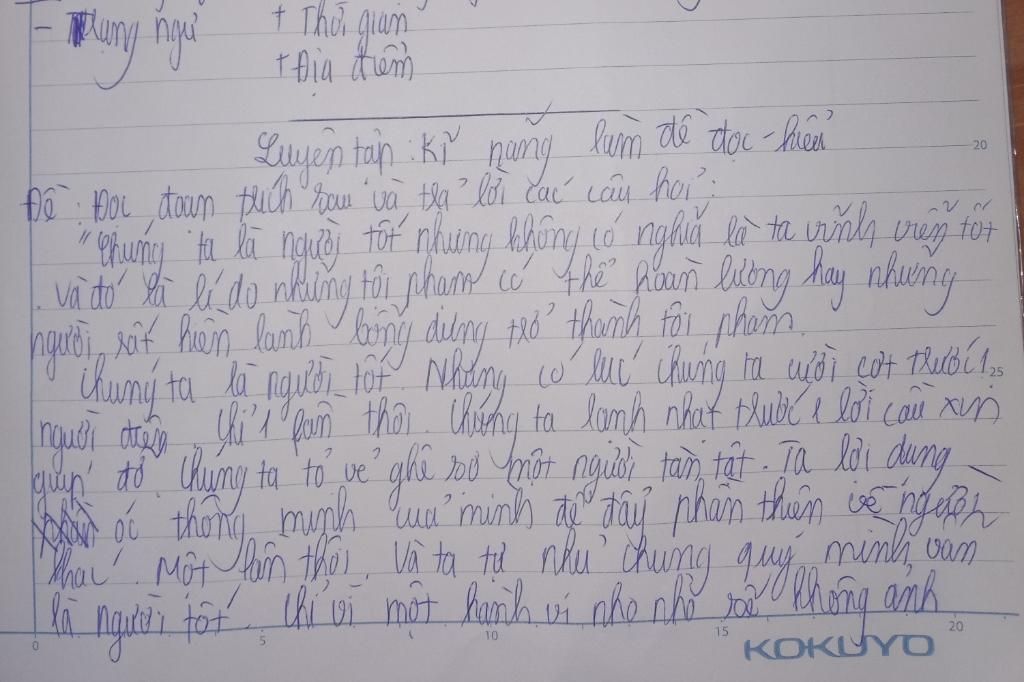 - Trạng ngữ + Thời gian
+ Địa điểm
Luyện tập: Kĩ năng làm đề đọc - hiểu
20
Đề: Đọc đoạn trích sau và trả lời các câu hỏi:
"Chúng ta là người tốt nhưng không có nghĩa là ta vĩnh viễn tốt
. Và đó là lí do những tội phạm có thể hoàn lương hay những
người rất hiền lành bỗng dưng trở thành tội phạm.
Chúng ta là người tốt. Nhưng có lúc chúng ta cười cợt trước 1
25
người điên. Chỉ 1 lần thôi. Chúng ta lạnh nhạt trước 1 lời cầu xin
giúp đỡ. Chúng ta tỏ vẻ ghê sợ một người tàn tật. Ta lợi dụng
óc thông minh của mình để đẩy phần thiên về người
khác. Một lần thôi. Và ta tự nhủ chung quy mình vẫn
là người tốt. Chỉ vì một hành vi nho nhỏ sẽ không ảnh
0 5 10 15 20
KOKUYO